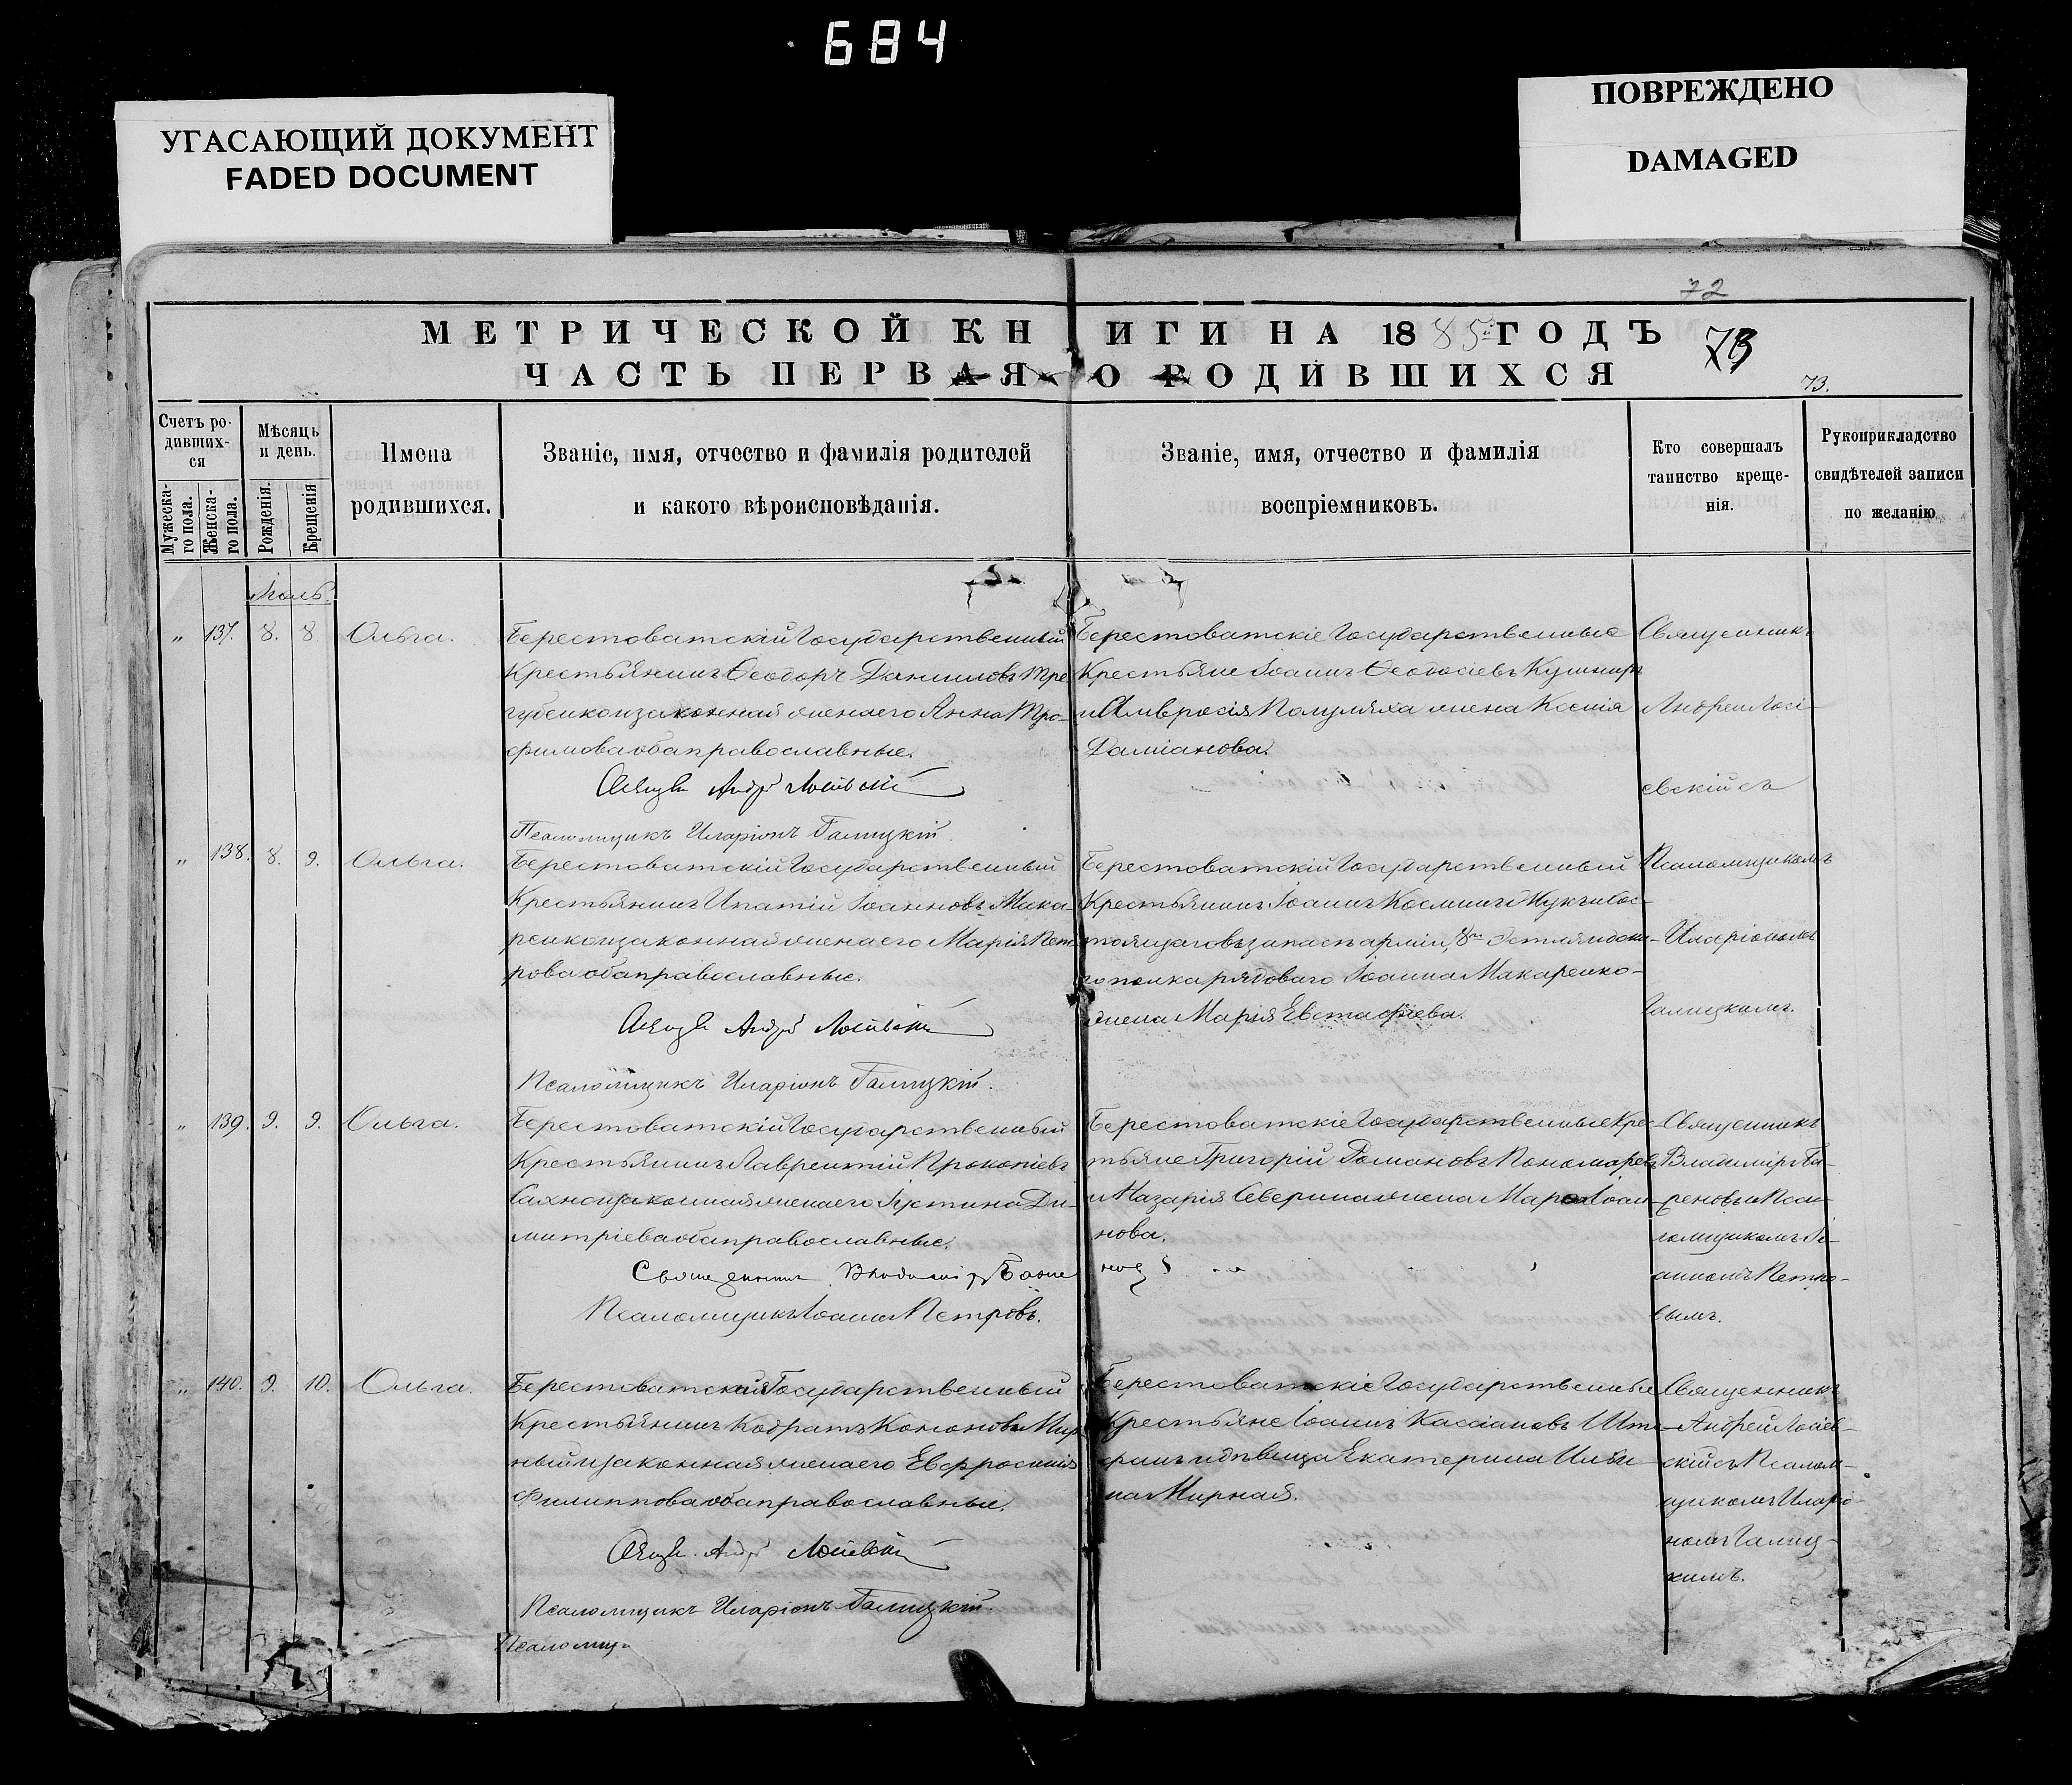 684
УГАСАЮЩИЙ ДОКУМЕНТ
FADED DOCUMENT
ПОВРЕЖДЕНО
DAMAGED
72
МЕТРИЧЕСКОЙ КНИГИ НА 1885 ГОДЪ
73
ЧАСТЬ ПЕРВАЯ О РОДИВШИХСЯ
73.
Счетъ ро-
дивших-
ся
Мужеска-
го пола.
Женска-
го пола.
Мѣсяцъ
и день.
Рожденія.
Крещенія
Имена
родившихся.
Званіе, имя, отчество и фамилія родителей
и какого вѣроисповѣданія.
Званіе, имя, отчество и фамилія
воспріемниковъ.
Кто совершалъ
таинство креще-
нія.
Рукоприкладство
свидѣтелей записи
по желанію
Іюль
„ 137. 8. 8. Ольга.
Берестоватскій Государственный
Крестьянинъ Ѳеодоръ Даниловъ Тре
губенко и законная жена его Анна Тро-
фимова оба православные.
Андр Лосіевскій
Псаломщикъ Иларіонъ Галицкій
Берестоватскіе Государственные
Крестьяне Іоаннъ Ѳеодосіевъ Кушниръ
и Амвросія Полуляха жена Ксенія
Даміанова.
Священникъ
Андрей Лосі-
евскій съ
„ 138. 8. 9. Ольга.
Берестоватскій Государственный
Крестьянинъ Ипатій Іоанновъ Мака-
ренко и законная жена его Марія Пет
рова оба православные.
Андр Лосіевскій
Псаломщикъ Иларіонъ Галицкій.
Берестоватскій Государственный
Крестьянинъ Іоаннъ Косминъ и Сос-
тоящаго въ запасѣ арміи, 8го Эстляндска-
го полка рядоваго Іоанна Макаренко-
жена Марія Евстафіева.
Псаломщикомъ
Иларіономъ
Галицкимъ.
„ 139. 9. 9. Ольга.
Берестоватскій Государственный
Крестьянинъ Лаврентій Прокопіевъ
Сахно и законная жена его Іустина Ди-
митріева оба православные.
Священникъ Владиміръ
Псаломщикъ Іоаннъ Петровъ.
Берестоватскіе Государственные Крес-
тьяне Григорій Романовъ Пономаревъ
и Назарія Северина жена Іоан-
нова.
Священникъ
Владиміръ
и Псал-
ломщикомъ Іо-
анномъ Петро-
вымъ.
„ 140. 9. 10. Ольга.
Берестоватскій Государственный
Крестьянинъ Кодратъ Кононовъ Мир
ный и законная жена его Евфросинія
Филиппова оба православные.
Андр Лосіевскій
Псаломщикъ Иларіонъ Галицкій.
Псаломщи
Берестоватскіе Государственные
Крестьяне Іоаннъ Кассіановъ
и дѣвица Екатерина Ильи-
на Мирная.
Священникъ
Андрей Лосіев-
скій съ Псалом-
щикомъ Иларіо-
номъ Галиц-
кимъ.